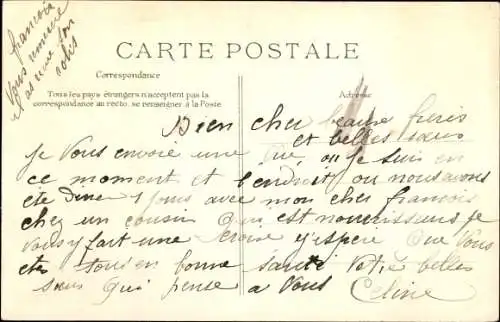 françois
vous remercie
il a reçu son
colis
CARTE POSTALE
Correspondance
Tous les pays étrangers n'acceptent pas la
correspondance au recto. se renseigner à la Poste
Adresse
Bien cher beause freris
et belles sœurs
Je Vous envoie une vue ou Je suis en
ce moment et l'endroit ou nous avons
ete Dine 1 Jours avec mon cher francois
chez un cousin Qui est nourrisseurs Je
Vous y fait une croix J'espere Que Vous
etes tous en bonne santé Votre belles
sœurs Qui pense a Vous Celine